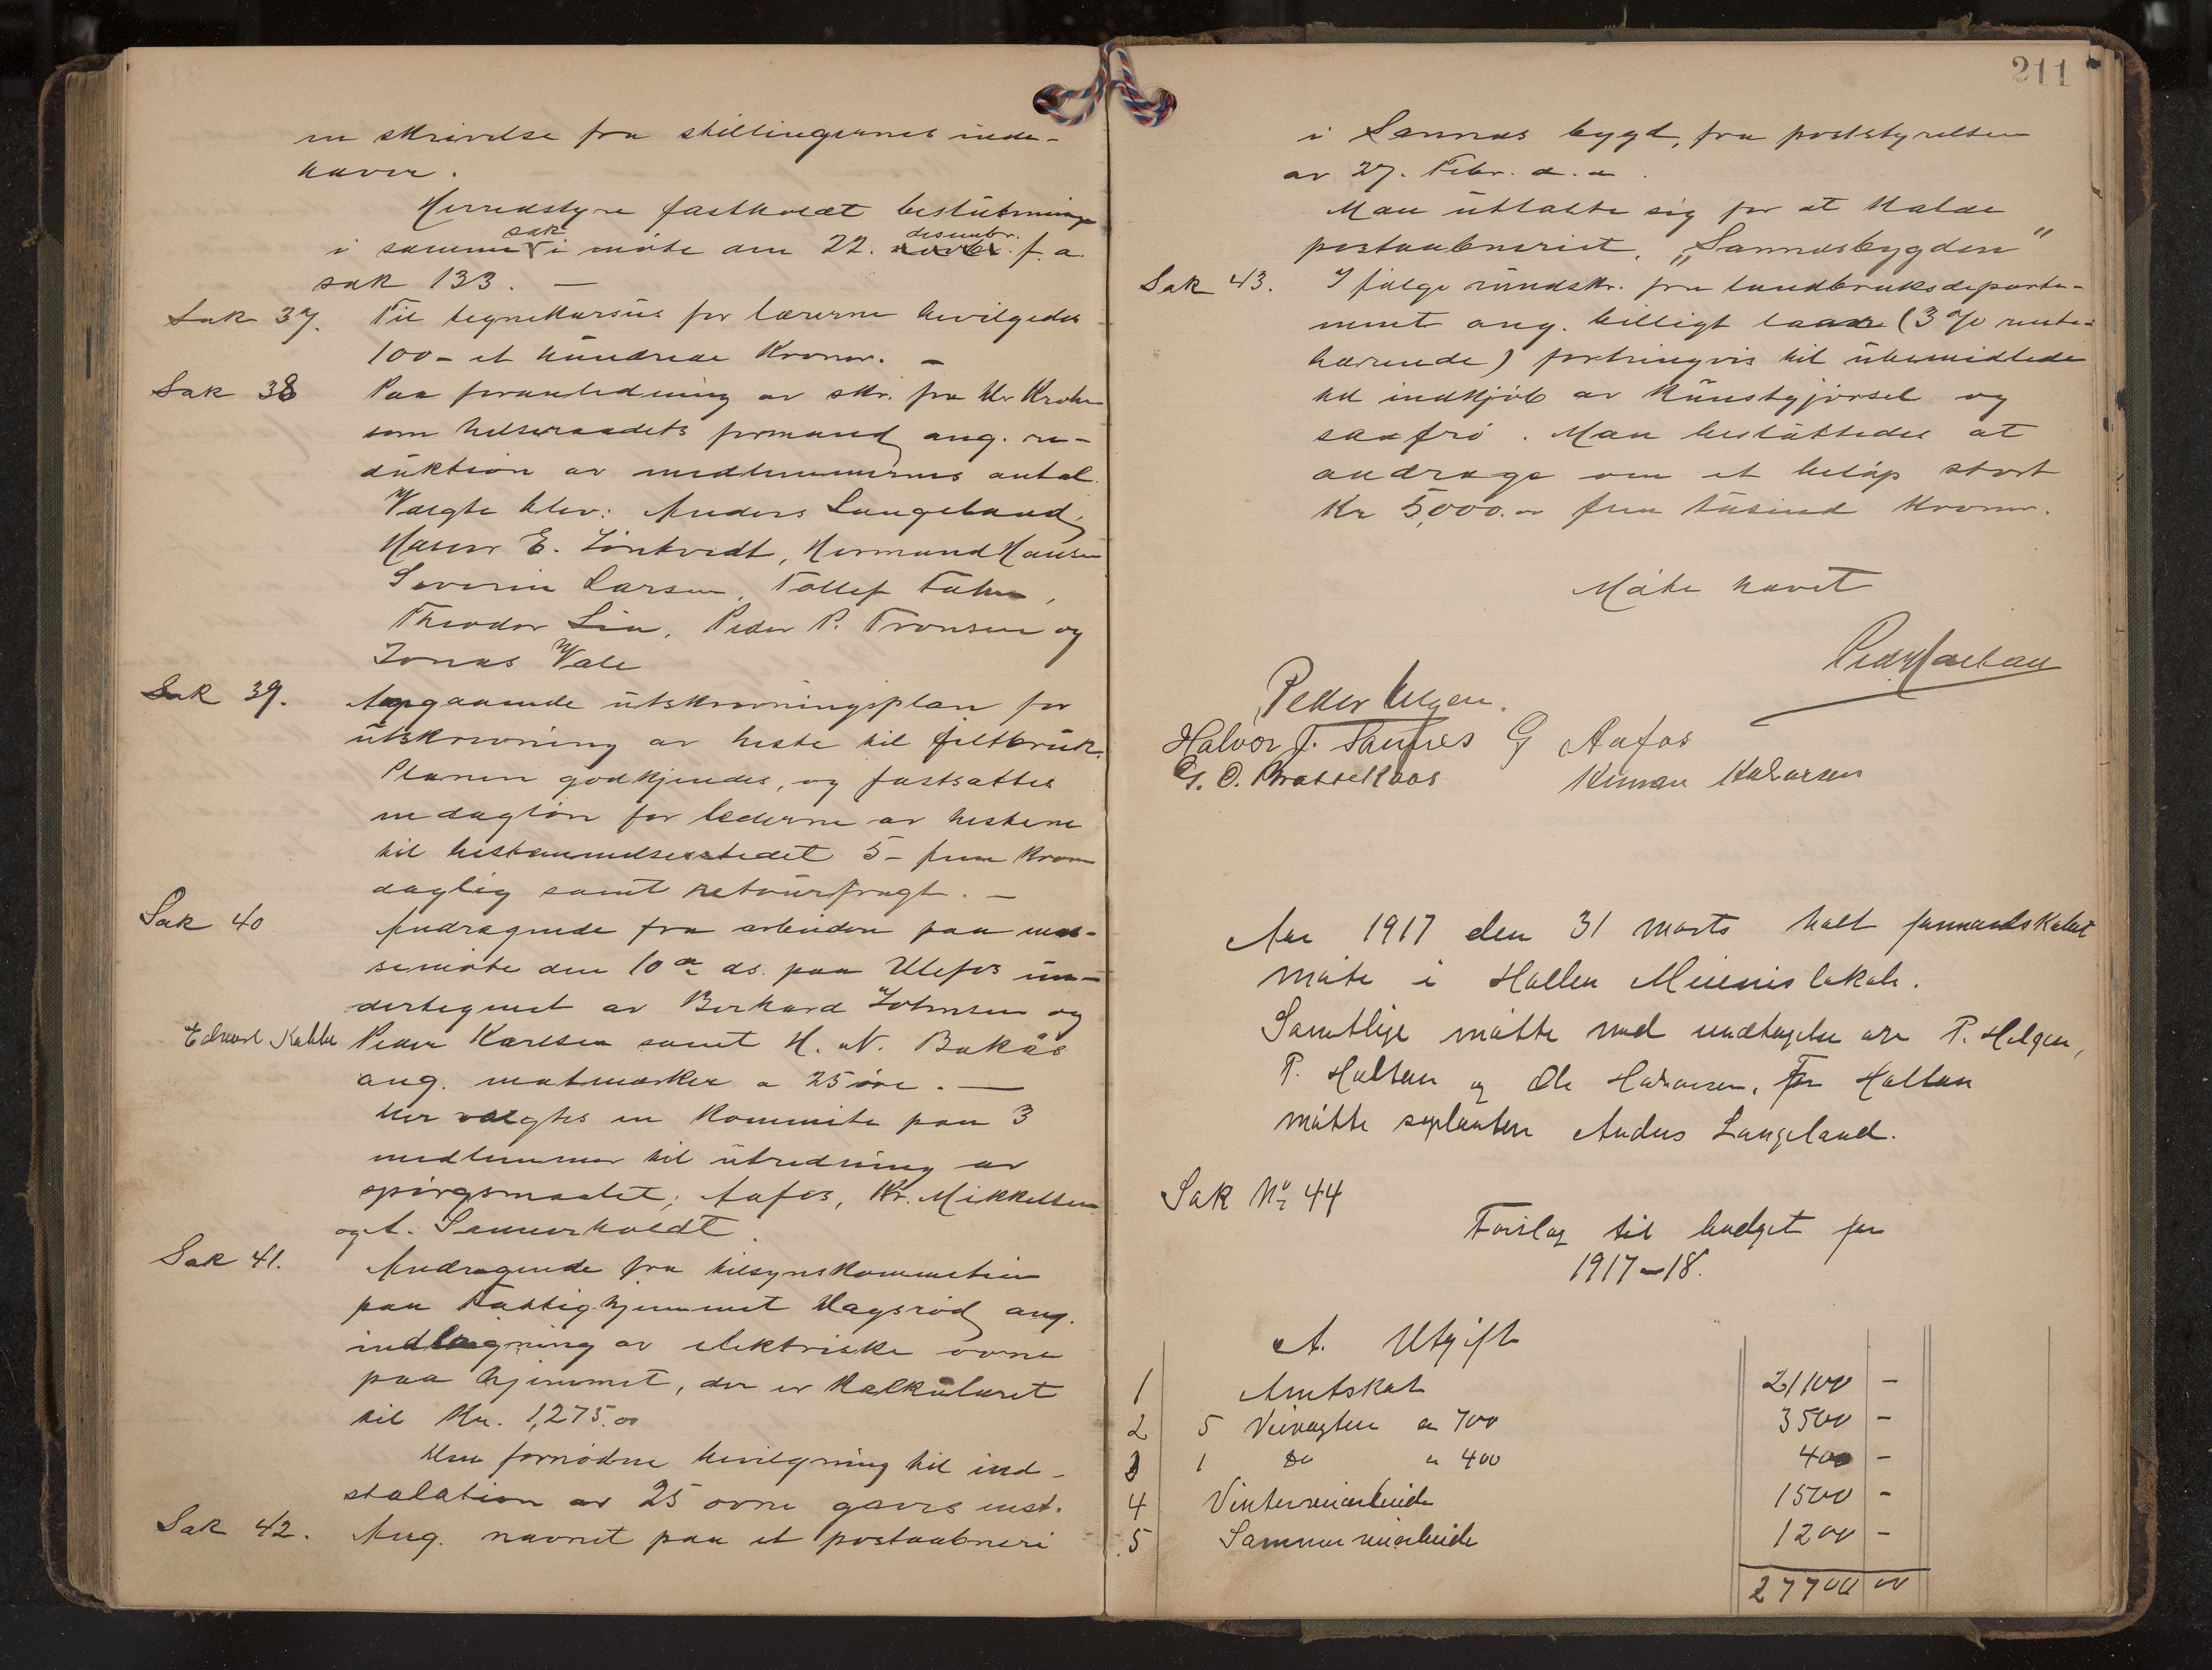 en skrivelse fra stillingernes inde-
haver.
Herredstyre fastholdt beslutninge
i samme sak i møte den 22. desembr. f. a.
sak 133. —
Sak 37. Til tegnekursus for lærerne bevilgedes
100 – et hundrede Kroner. –
Sak 38 Paa foranledning av skr. fra Dr Krohn
som helseraadets formand ang. re-
duktion av medlemmernes antal.
Valgte blev: Anders Langeland,
Halvor E. Tinkvedt, Hermand Hansen
Severin Larsen, Tollef Tahn,
Theodor Lia, Peder P. Tronsen og
Jonas Vale
Sak 39. Angaaende utskrivningsplan for
utskrivning av heste til feltbruk.
Planen godkjendes, og fastsattes
en dagløn for lederne av hestene
til bestemmelsesstedet 5 – fem Kroner
daglig samt retourfragt. —
Sak 40 Andragende fra arbeidere paa mas-
semøte den 10de ds. paa Ulefos un-
dertegnet av Berhard Johnsen og
Edvard Kabbe Peder Karlsen samt H. N. Bakås
ang. matmærker a 25 øre. —
Her valgtes en Kommite paa 3
medlemmer til utredning av
spørgsmaalet; Aafos, Kr. Mikkelsen
og A. Sannerholdt.
Sak 41. Andragende fra tilsynskommiteen
paa Fattighjemmet Hagsrød ang.
indlægning av elektriske ovne
paa hjemmet, der er kalkuleret
til Kr. 1,275.00
Den fornødne bevilgning til ind-
stalation av 25 ovne gaves enst.
Sak 42. Ang. navnet paa et postaabneri
211
i Sannes bygd, fra poststyrelsen
av 27. Febr. d. a.
Man uttalte sig for at kalde
postaabneriet, „Sannesbygden“
Sak 43. I følge rundskr. fra landbruksdeparte-
ment ang. billigt laan (3 % rente-
bærende) fortrinsvis til ubemidlede
til indkjøb av kunstgjødsel og
saafrø. Man besluttedes at
andrage om et beløp stort
Kr 5,000.00 fem tusind Kroner.
Møte hævet
Peder Helgen.
Halvor J. Sannes G Aafos
G. O. Bratsekaas Halvorsen
Aar 1917 den 31 marts halt formandskabet
møte i Hallen Minnislokale.
Samtlige møtte med undtagelse av P. Helgen,
P. Holtan og Ole Halvorsen. For Holtan
møtte suplanten Anders Langeland.
Sak No 44
Forslag til budget for
1917–18.
A. Utgift
1 Amtskat 21100 –
2 5 Veivogtere a 700 3500 –
3 1 Do a 400 400 –
4 Vinterveiarbeide 1500 –
5 Sommerveiarbeide 1200 –
27700 00